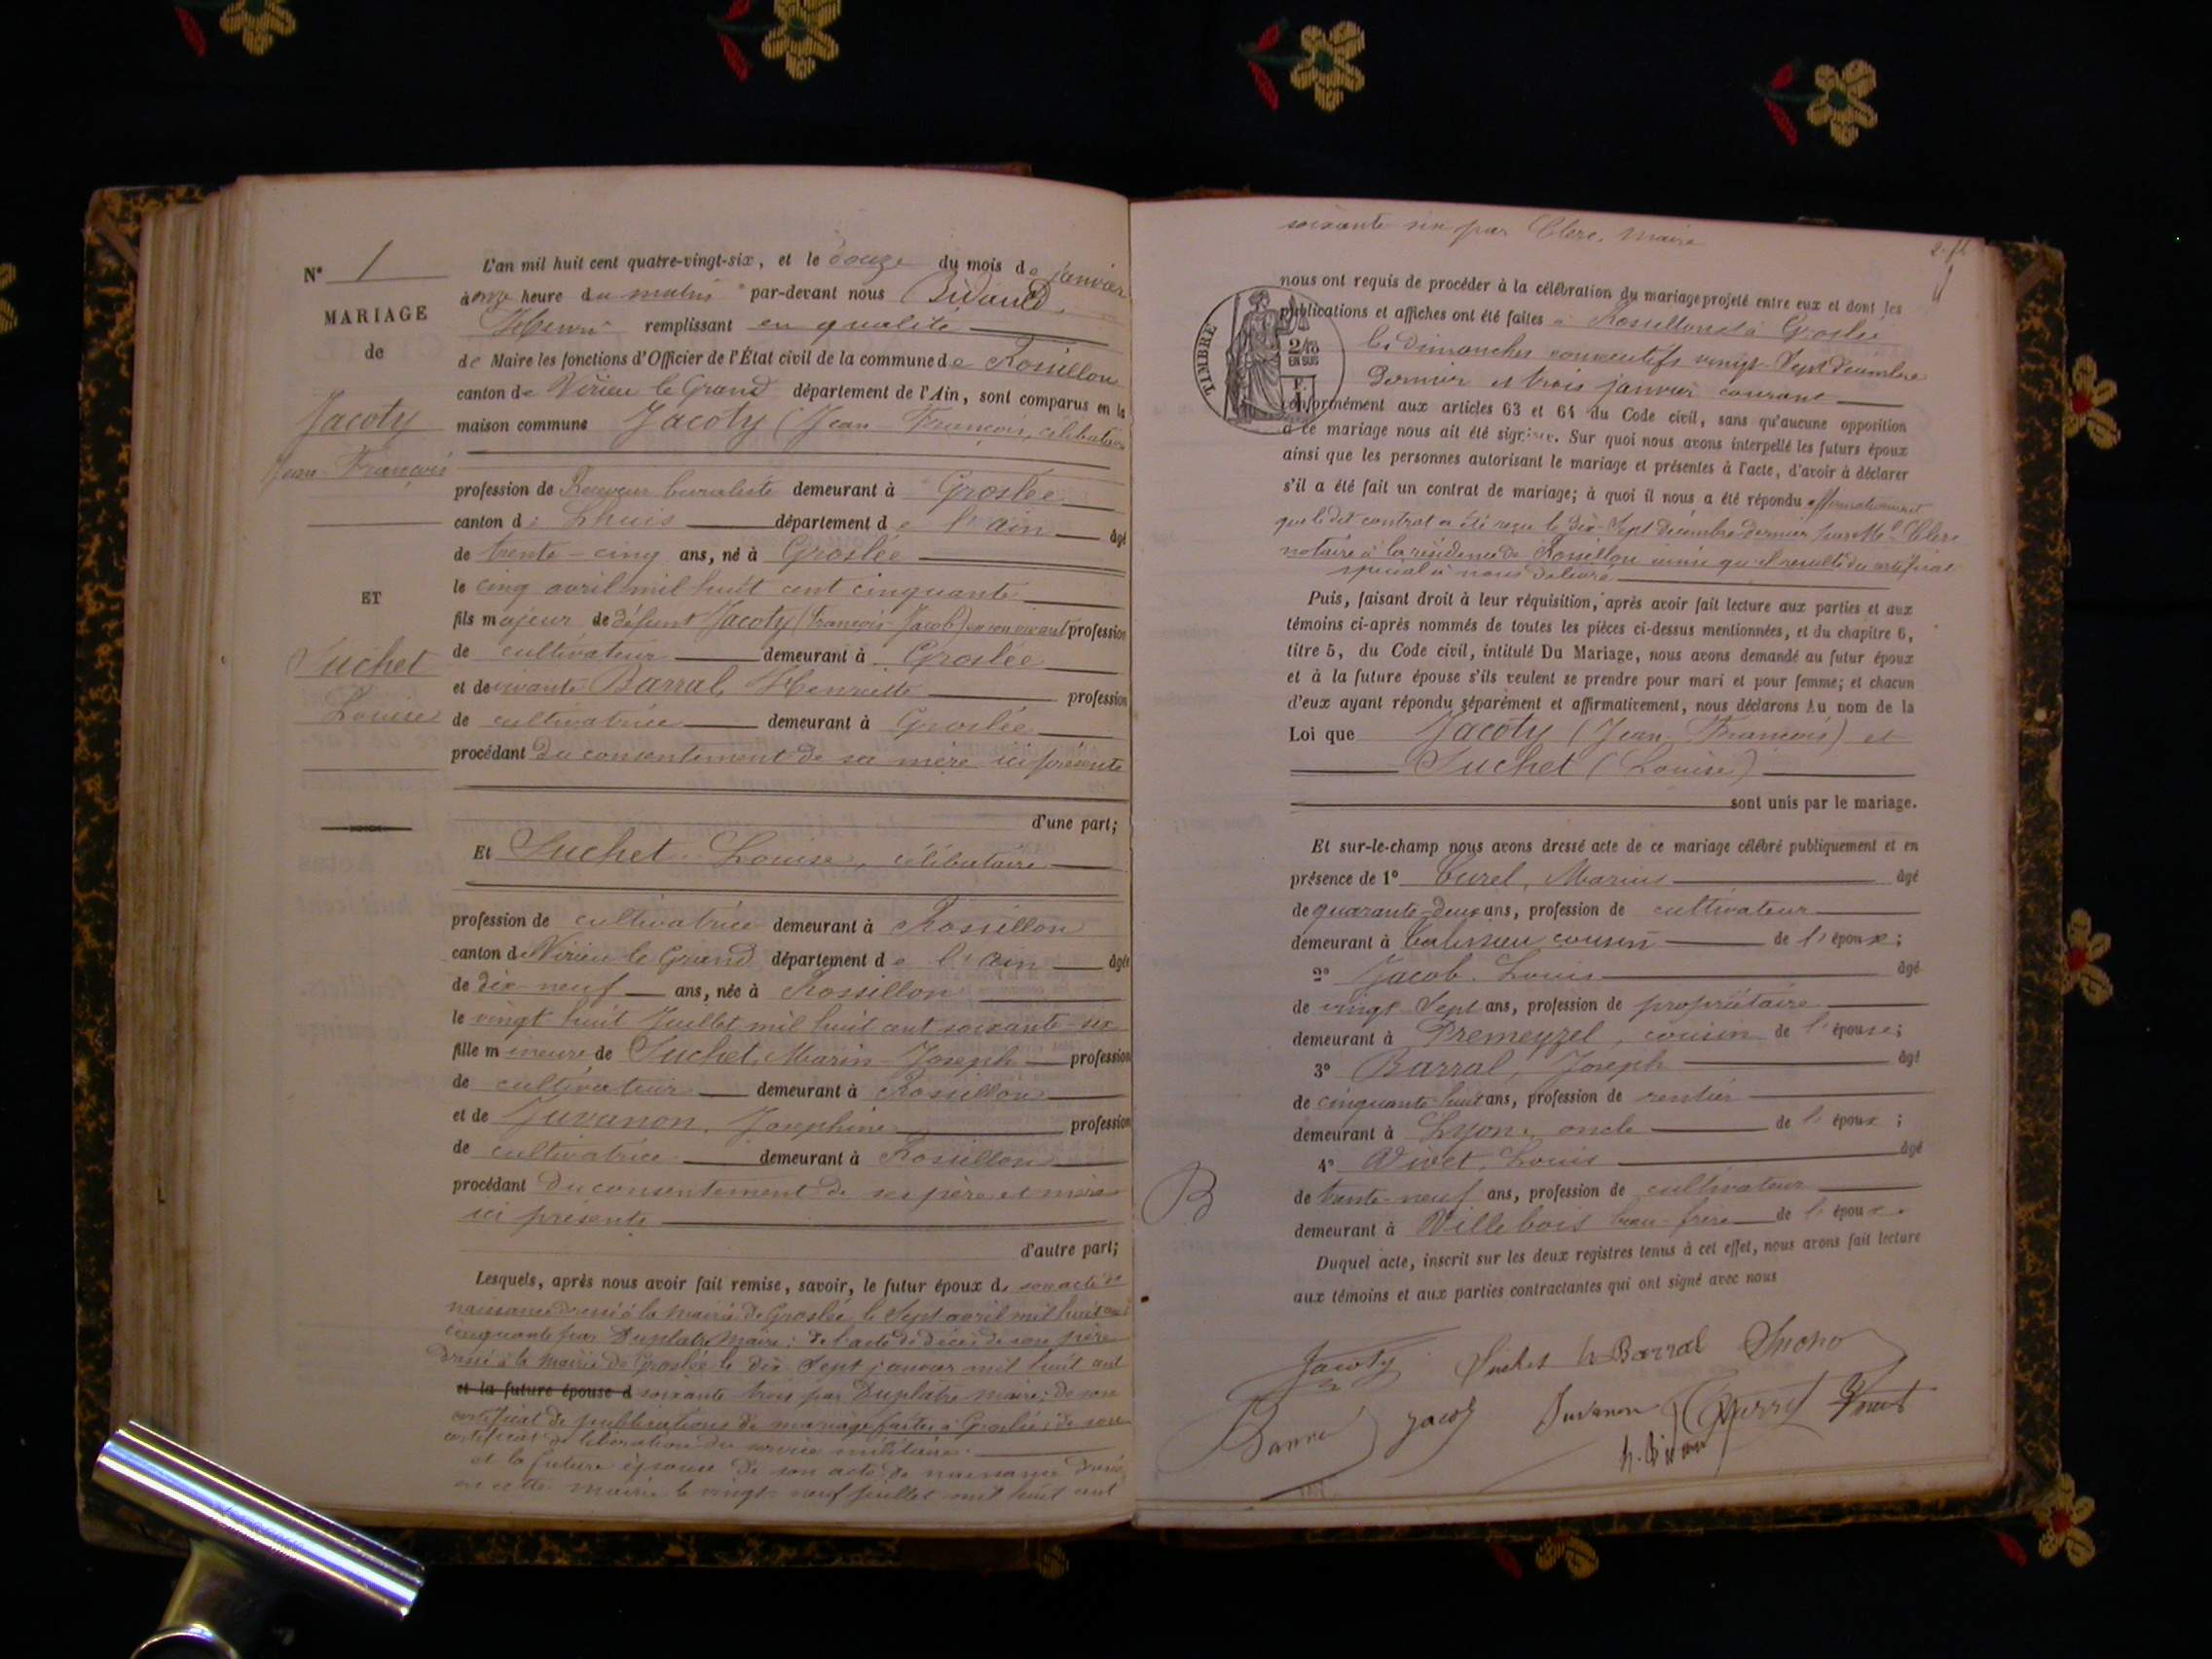 N° 1
MARIAGE
de
Jacoty
Jean François
ET
Suchet
Louise
L'an mil huit cent quatre-vingt-six, et le douze du mois de janvier
à onze heure du matin par-devant nous
Henri remplissant en qualité
de Maire les fonctions d'Officier de l'État civil de la commune de Rossillon
canton de Virieu le Grand département de l'Ain, sont comparus en la
maison commune Jacoty (Jean-François, célibataire
profession de Receveur buraliste demeurant à Groslée
canton de Lhuis département de l'Ain âgé
de trente-cinq ans, né à Groslée
le cinq avril mil huit cent cinquante
fils majeur de défunt Jacoty (François-Jacob) en son vivant profession
de cultivateur demeurant à Groslée
et de vivante Barral Henriette profession
de cultivatrice demeurant à Groslée
procédant du consentement de sa mère ici présente
d'une part;
Et Suchet Louise, célibataire
profession de cultivatrice demeurant à Rossillon
canton de Virieu le Grand département de l'Ain âgée
de dix-neuf ans, née à Rossillon
le vingt huit Juillet mil huit cent soixante-six
fille mineure de Suchet, Marin-Joseph profession
de cultivateur demeurant à Rossillon
et de Juvanon, Josephine profession
de cultivatrice demeurant à Rossillon
procédant du consentement de ses père et mère
ici présents
d'autre part;
Lesquels, après nous avoir fait remise, savoir, le futur époux de son acte de
naissance dressé à la Mairie de Groslée le Sept avril mil huit cent
cinquante par Duplatre Maire; de l'acte de décès de son père
dressé à la Mairie de Groslée le dix-Sept janvier mil huit cent
et la future épouse d soixante trois par Duplatre Maire; de son
certificat de publications de mariage faites à Groslée; de son
certificat de libération du service militaire.
et la future épouse de son acte de naissance dressé
en cette mairie le vingt neuf juillet mil huit cent
soixante six par Clerc, Maire
TIMBRE
2/10
EN SUS
nous ont requis de procéder à la célébration du mariage projeté entre eux et dont les
publications et affiches ont été faites à Rossillon et à Groslée
les dimanches consécutifs vingt-Sept décembre
dernier et trois janvier courant
conformément aux articles 63 et 64 du Code civil, sans qu'aucune opposition
à ce mariage nous ait été signifiée. Sur quoi nous avons interpellé les futurs époux
ainsi que les personnes autorisant le mariage et présentes à l'acte, d'avoir à déclarer
s'il a été fait un contrat de mariage; à quoi il nous a été répondu affirmativement
que le dit contrat a été reçu le dix-Sept Décembre dernier par Me Clerc
notaire à la résidence de Rossillon ainsi qu'il resulte du certificat
special à nous délivré
Puis, faisant droit à leur réquisition, après avoir fait lecture aux parties et aux
témoins ci-après nommés de toutes les pièces ci-dessus mentionnées, et du chapitre 6,
titre 5, du Code civil, intitulé Du Mariage, nous avons demandé au futur époux
et à la future épouse s'ils veulent se prendre pour mari et pour femme; et chacun
d'eux ayant répondu séparément et affirmativement, nous déclarons Au nom de la
Loi que Jacoty (Jean-François) et
Suchet (Louise)
sont unis par le mariage.
Et sur-le-champ nous avons dressé acte de ce mariage célébré publiquement et en
présence de 1° Curel, Marius âgé
de quarante-deux ans, profession de cultivateur
demeurant à cousin de l'époux;
2° Jacob. Louis âgé
de vingt Sept ans, profession de propriétaire
demeurant à Premeyzel, cousin de l'épouse;
3° Barral, Joseph âgé
de cinquante-huit ans, profession de rentier
demeurant à Lyon, oncle de l'époux;
4° Vivet, Louis âgé
de trente-neuf ans, profession de cultivateur
demeurant à Villebois beau-frère de l'époux.
Duquel acte, inscrit sur les deux registres tenus à cet effet, nous avons fait lecture
aux témoins et aux parties contractantes qui ont signé avec nous
B
Jacoty Suchet Barral
Jacob Juvanon